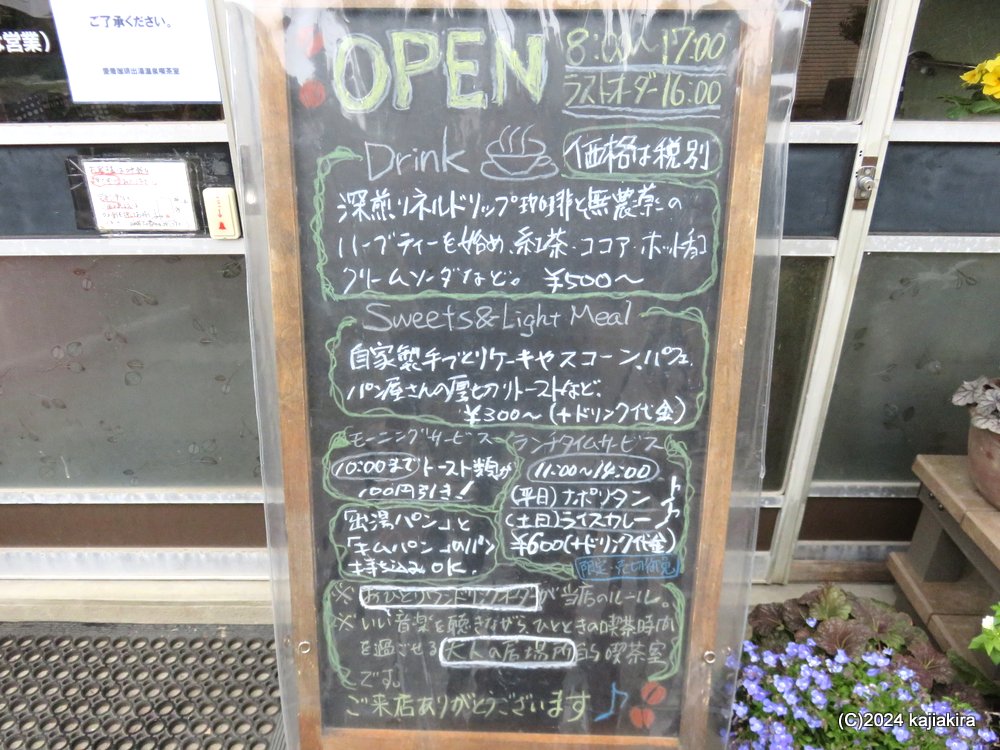 ご了承ください。
営業)
愛養珈琲出湯温泉喫茶室
OPEN
8:00〜17:00
ラストオーダー16:00
Drink
価格は税別
深煎りネルドリップ珈琲と無農薬の
ハーブティーを始め、紅茶・ココア・ホットチョコ
クリームソーダなど。 ¥500〜
Sweets&Light Meal
自家製手づくりケーキやスコーン、パフェ、
パン屋さんの厚切りトーストなど。
¥300〜(+ドリンク代金)
モーニングサービス
10:00までトースト類が
100円引き!
「出湯パン」と
「キムパン」のパン
持ち込みOK.
ランチタイムサービス
11:00〜14:00
(平日)ナポリタン
(土日)ライスカレー
¥600(+ドリンク代金)
限定・売切御免
※おひとりワンドリンクオーダーが当店のルール。
※いい音楽を聴きながらひとときの喫茶時間
を過ごせる大人の居場所的喫茶室
です。
ご来店ありがとうございます♪
(C)2024 kajiakira